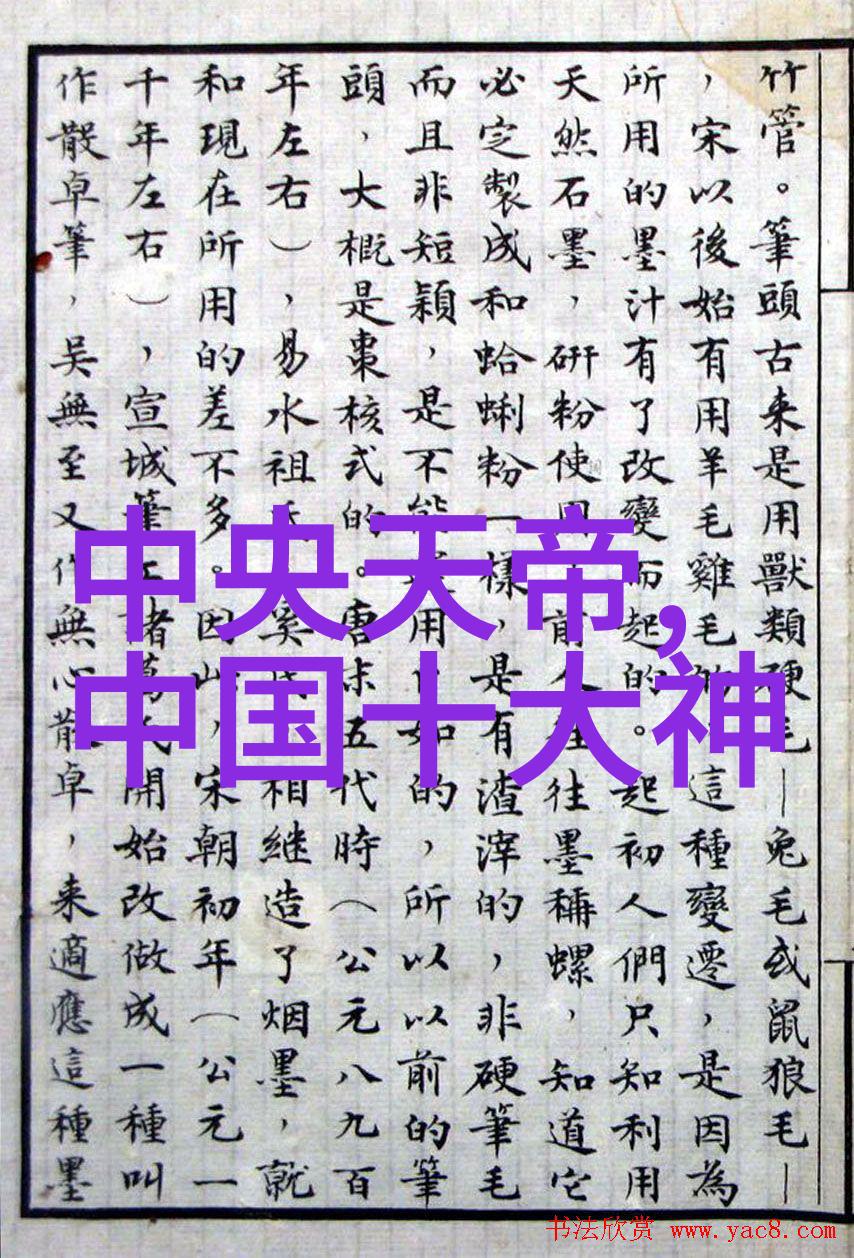 竹管。筆頭古来是用獸類硬毛—兔毛或鼠狼毛—
，宋以後始有用羊毛雞毛的這種變遷，是因為
所用的墨汁有了改變而起的。起初人們只知利用
天然石墨，研粉使用前人往往墨稱螺，知道它
必定製成和蛤蜊粉一樣，是有渣滓的，非硬筆毛
而且非短穎，是不能用如的，所以以前的筆
頭，大概是棗核式的。唐末五代時（公元八九百
年左右），易水祖氏奚氏相繼造了烟墨，就
和現在所用的差不多。因此，宋朝初年（公元一
千年左右），宣城筆工諸葛氏開始改做成一種叫
作散卓筆，吳無至又作無心散卓，来適應這種墨
中央天帝,
中国十大神
书法欣赏 www.yac8.com